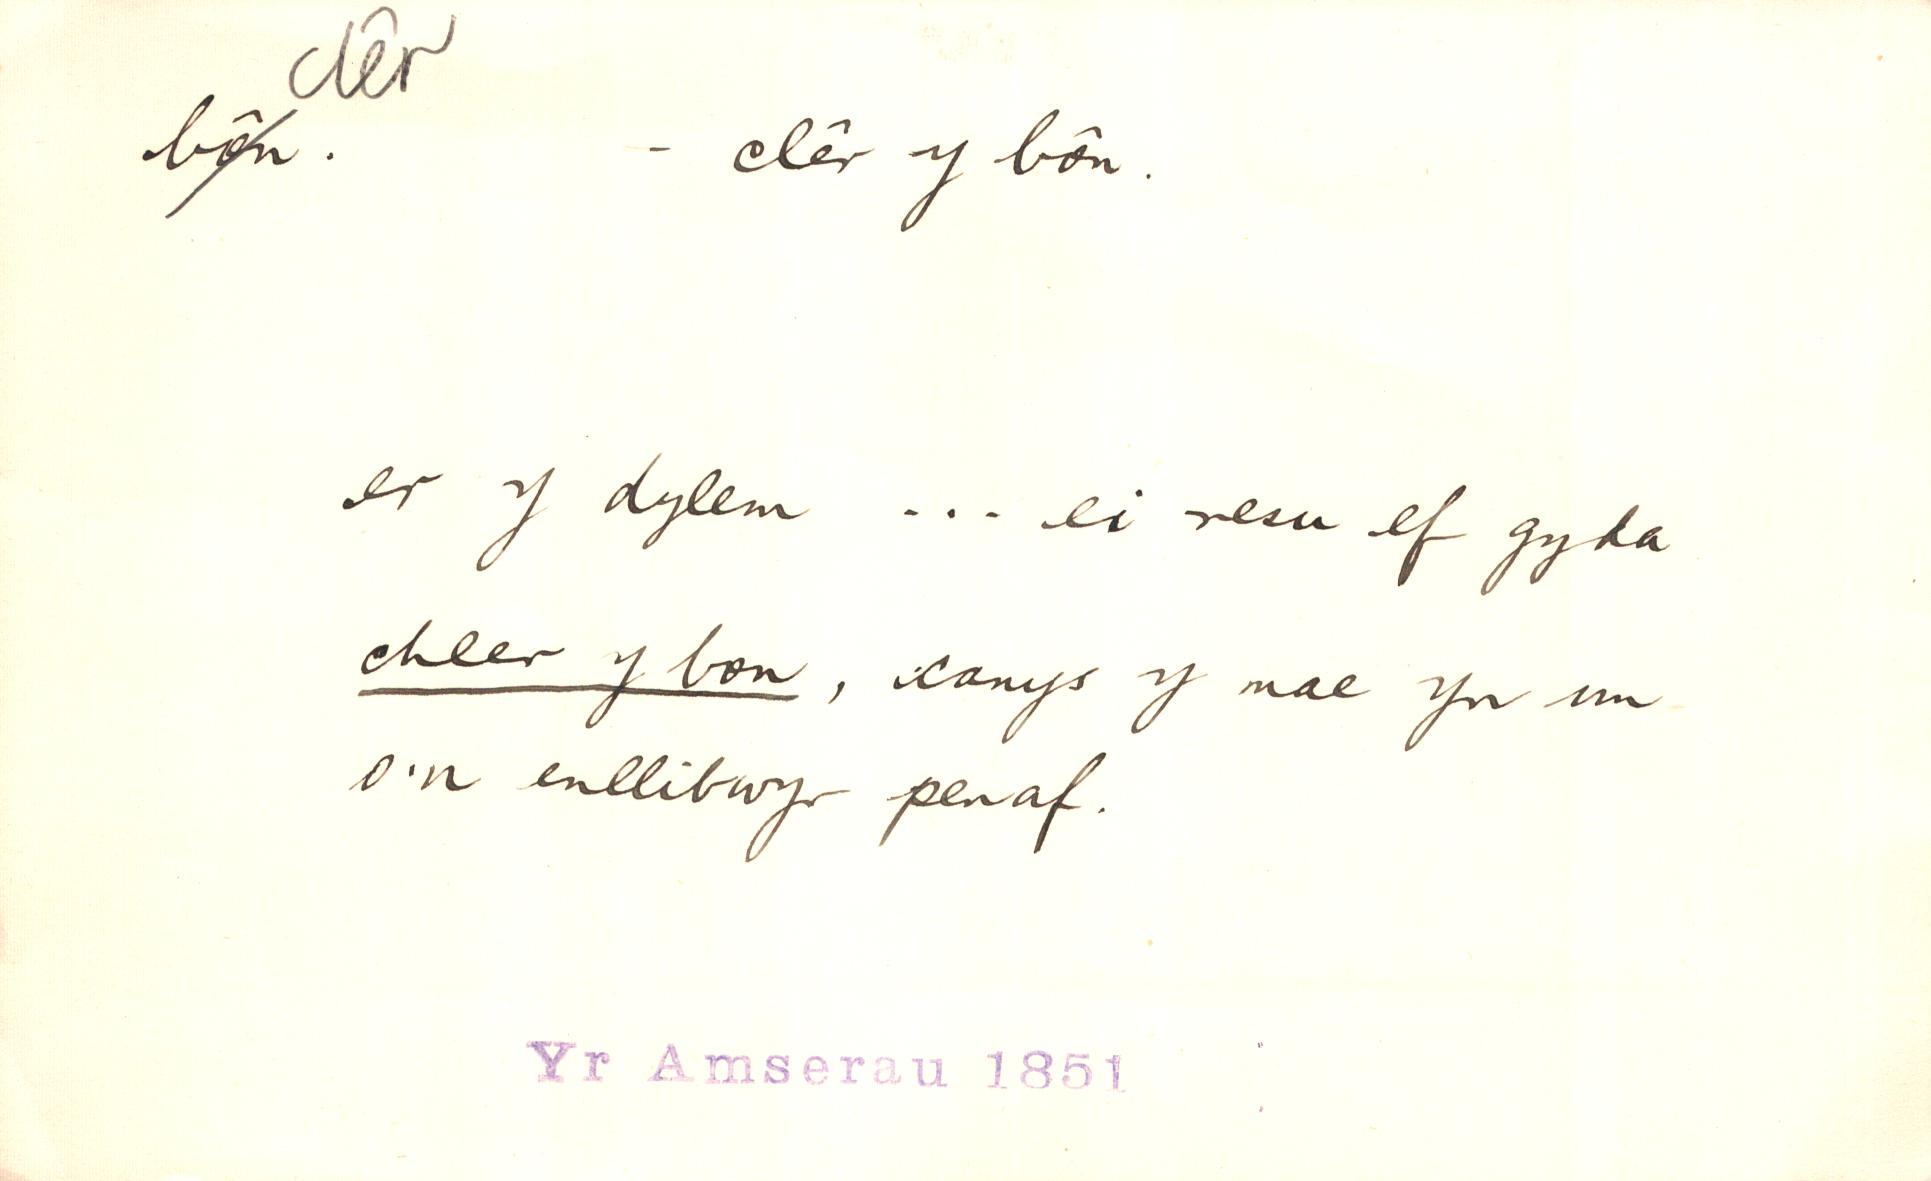 clêr
bôn. - clêr y bôn.
er y dylem ... ei resu ef gyda
chleer y bon, canys y mae yn un
o'n enllibwyr penaf.
Yr Amserau 1851